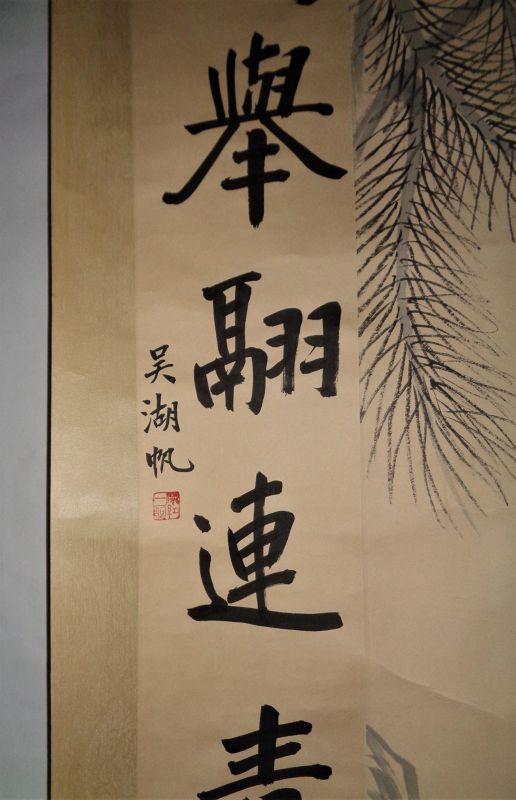 舉翮連青
吳湖帆